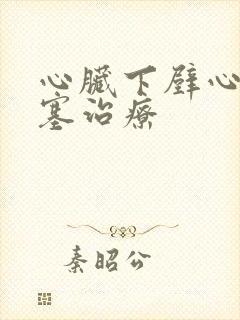 心臟下壁心
塞治療
秦昭公